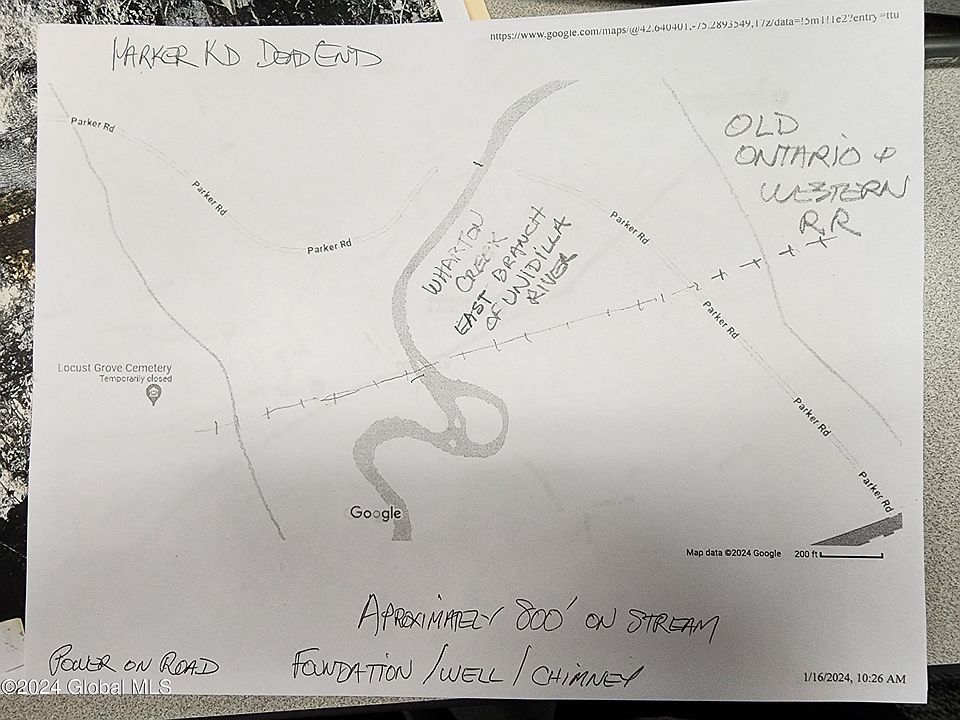 https://www.google.com/maps/@42.640401,-75.2893549,17z/data=!5m1!1e2?entry=ttu
PARKER RD DEAD END
Parker Rd
Parker Rd
Parker Rd
Parker Rd
Parker Rd
Parker Rd
Parker Rd
OLD
ONTARIO &
WESTERN
R.R
WHARTON
CREEK
EAST BRANCH
OF UNIDILLA
RIVER
Locust Grove Cemetery
Temporarily closed
Google
Map data ©2024 Google 200 ft
APROXIMATELY 800' ON STREAM
POWER ON ROAD
FOUNDATION / WELL / CHIMNEY
1/16/2024, 10:26 AM
©2024 Global MLS